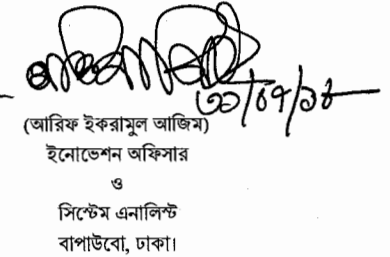 (আরিফ ইকরামুল আজিম)
ইনোভেশন অফিসার
ও
সিস্টেম এনালিস্ট
বাপাউবো, ঢাকা।